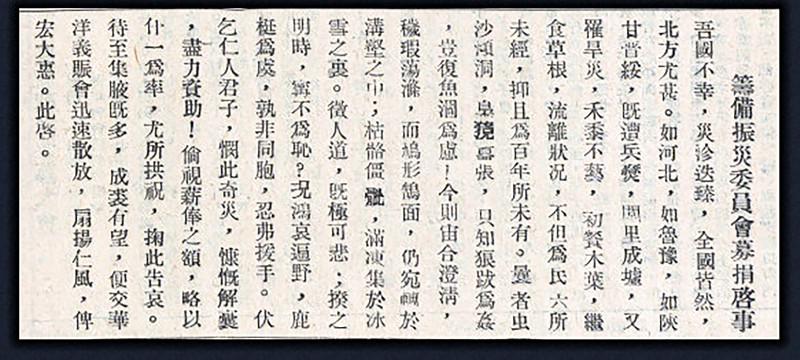 籌備振災委員會募捐啓事
吾國不幸，災沴迭臻，全國皆然，
北方尤甚。如河北，如魯豫，如陝
甘晋綏，旣遭兵燹，閭里成墟，又
罹旱災，禾黍不藝，初餐木葉，繼
食草根，流離狀况，不但爲民六所
未經，抑且爲百年所未有。曩者虫
沙澒洞，梟獍囂張，只知狼跋爲姦
，豈復魚涸爲慮！今則宙合澄淸，
穢瑕蕩滌，而鳩形鵠面，仍宛轉於
溝壑之中；枯骼僵，滿凍集於冰
雪之裏。徵人道，旣極可悲；揆之
明時，寗不爲恥？况鴻哀遍野，鹿
梃爲虞，孰非同胞，忍弗援手。伏
乞仁人君子，憫此奇災，慷慨解囊
，盡力資助！倫視薪俸之額，略以
什一爲率，尤所拱視，掬此告哀。
待至集腋旣多，成裘有望，便交華
洋義賑會迅速散放，扇揚仁風，俾
宏大惠。此啓。